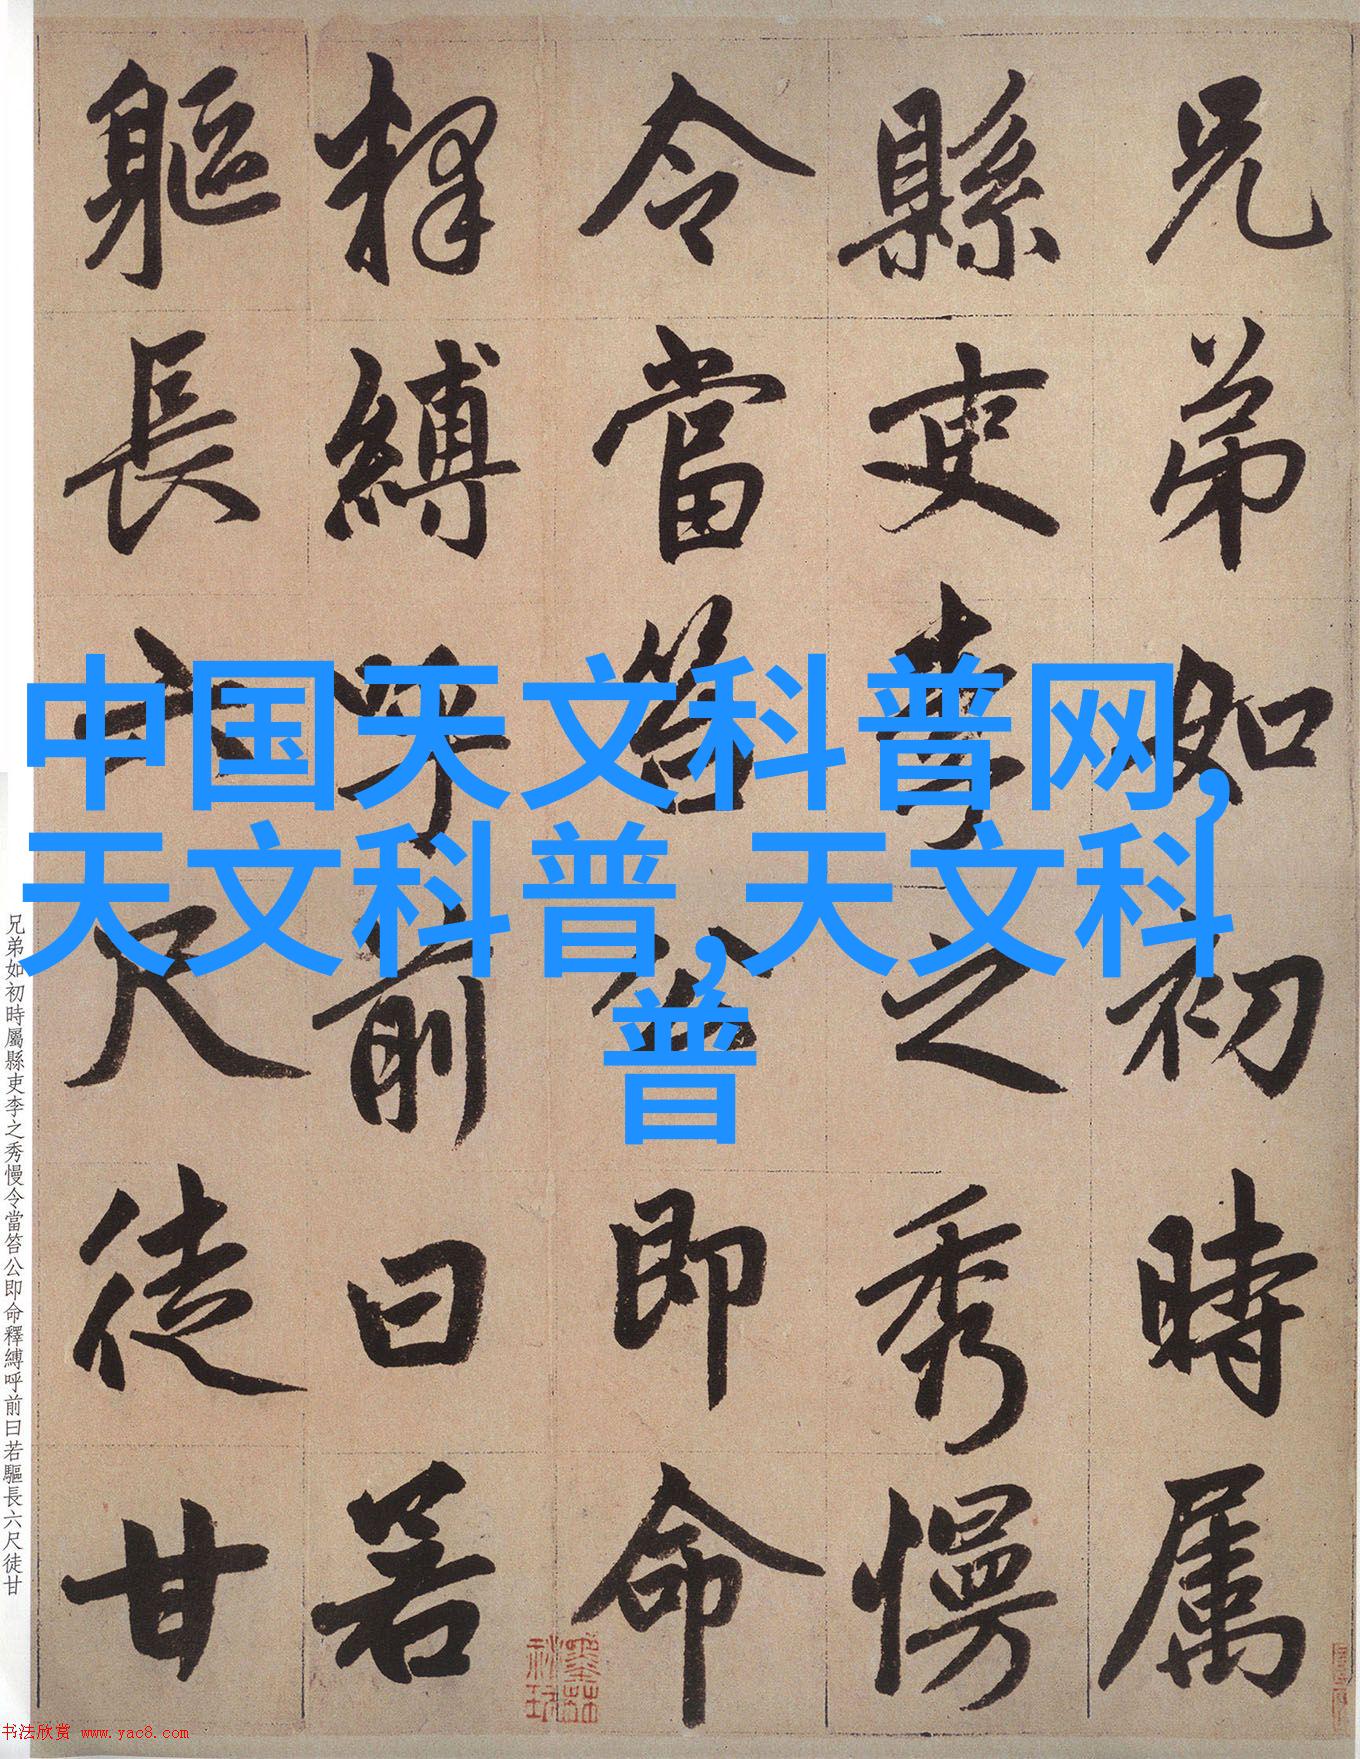 兄弟如初時属
縣吏李之秀慢
令當笞公即命
释縛呼前曰若
軀長六尺徒甘
中国天文科普网,
天文科普,天文科
普
兄弟如初時屬縣吏李之秀慢令當笞公即命釋縛呼前曰若驅長六尺徒甘
书法欣赏 www.yac8.com